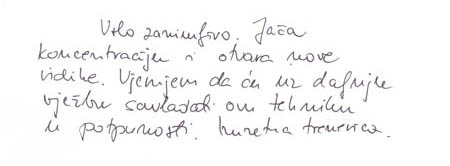 Vrlo zanimljivo. Jača
koncentraciju i otvara nove
vidike. Vjerujem da ću uz daljnje
vježbe savladati ovu tehniku
u potpunosti. Izuzetna trenerica.